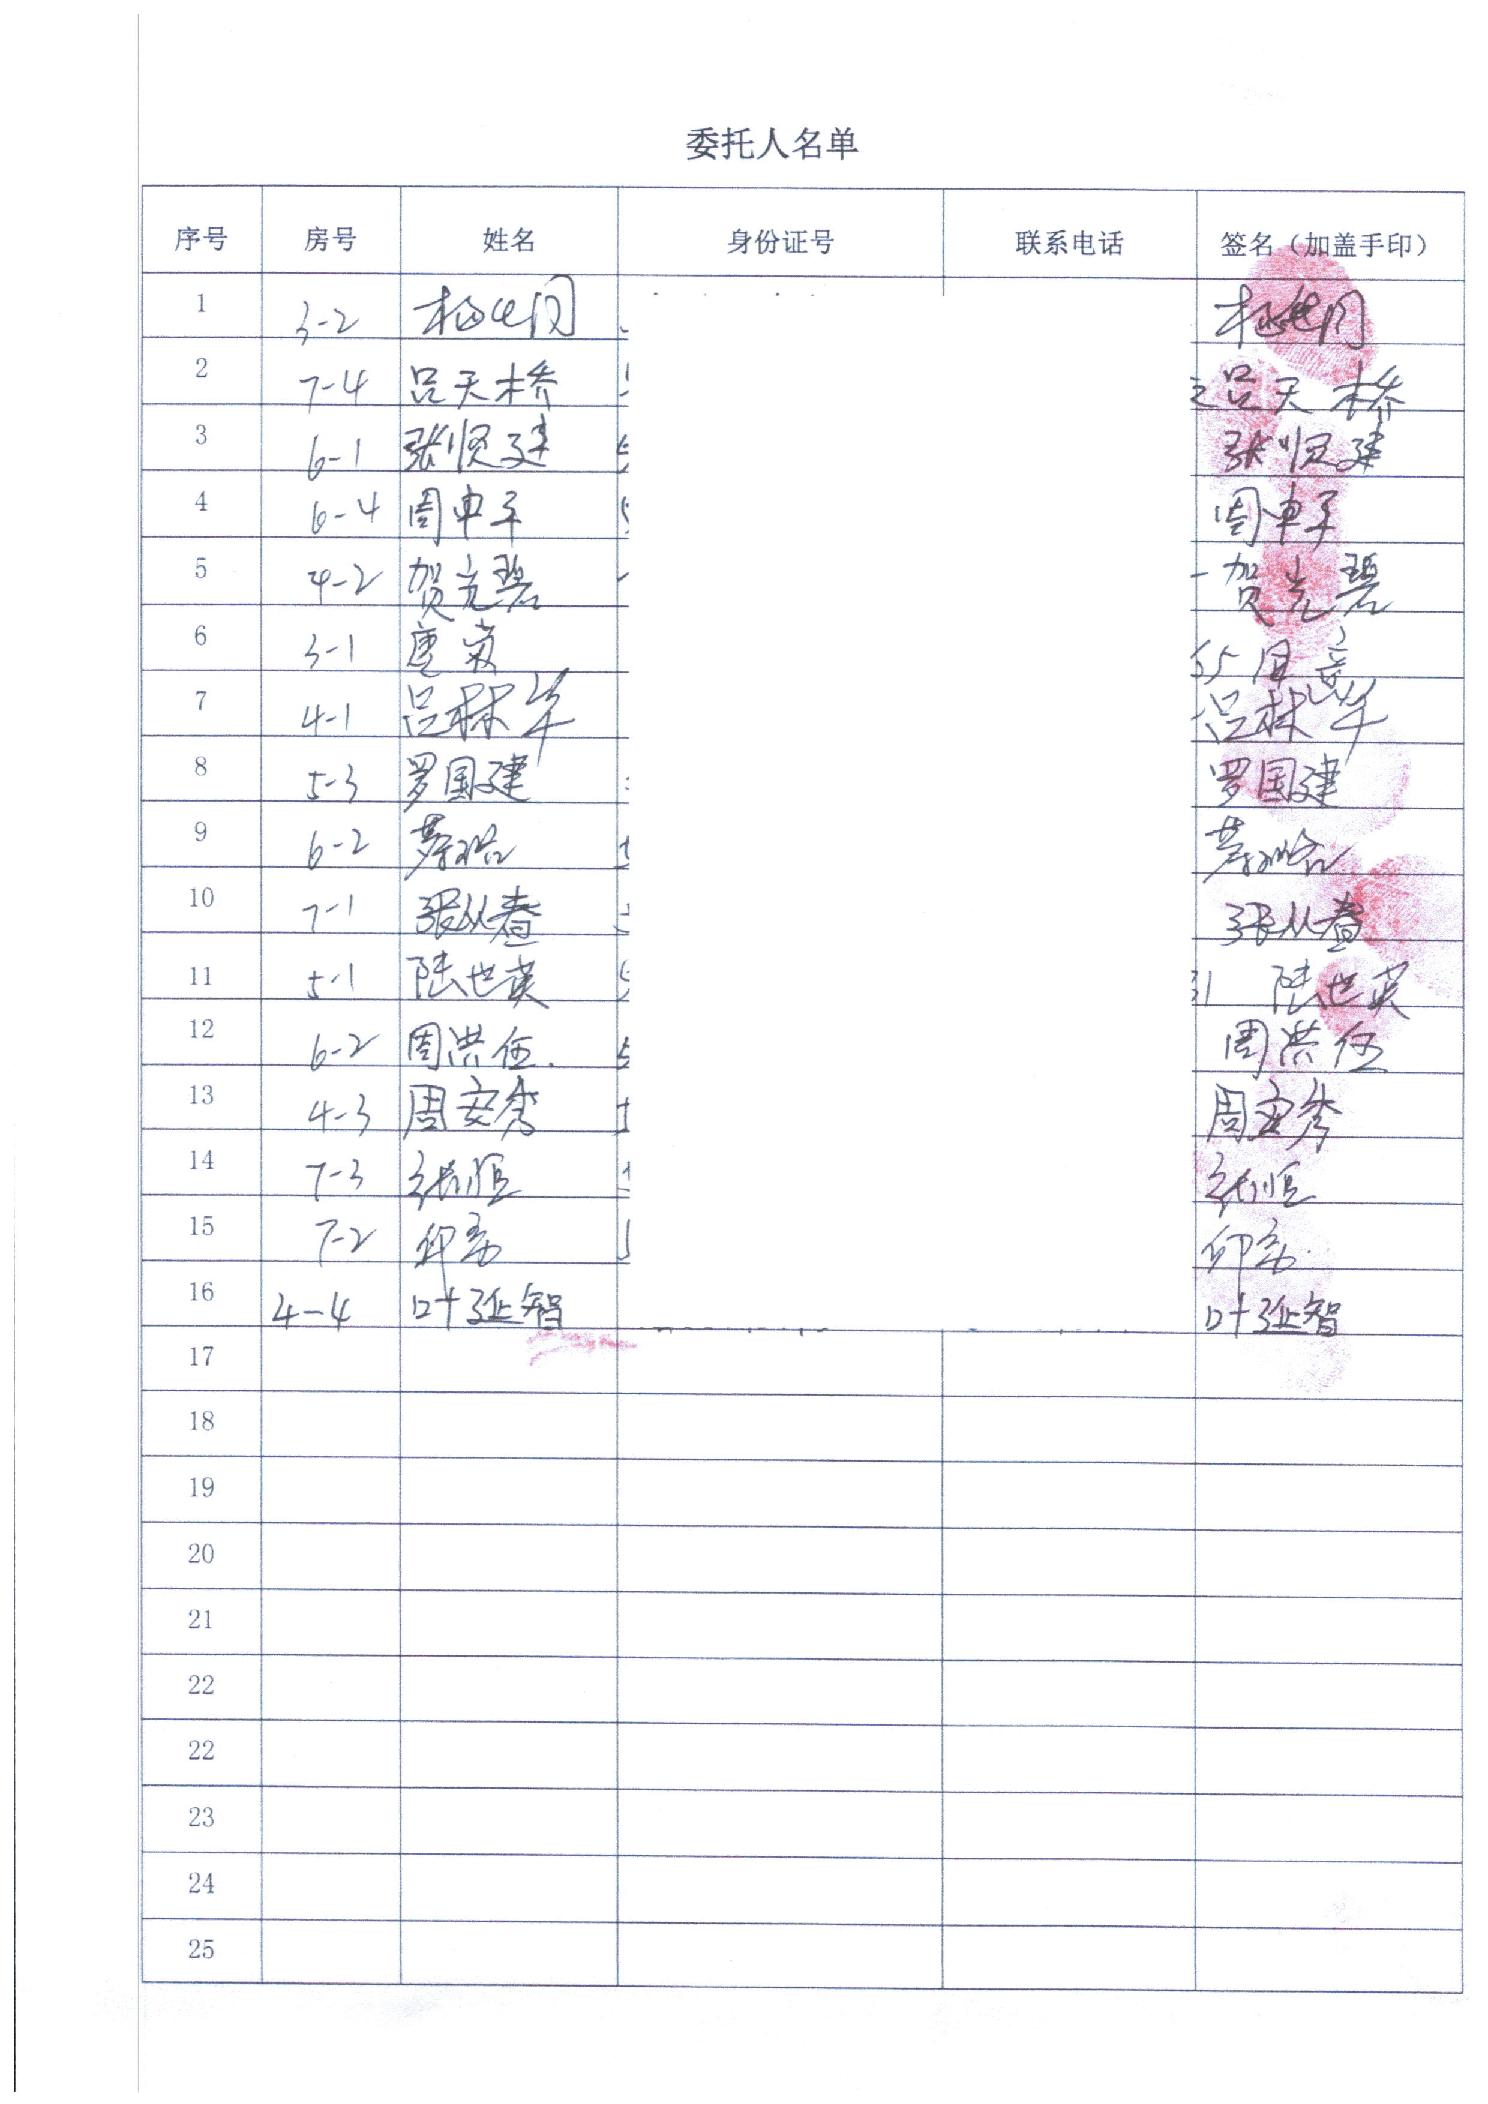 委托人名单
序号 房号 姓名 身份证号 联系电话 签名（加盖手印）
1 3-2
2 7-4 吕天桥 吕天桥
3 6-1 张贤建 张贤建
4 6-4 周中平 周中平
5 4-2 贺克碧 贺克碧
6 3-1 唐
7 4-1 吕林华 吕林华
8 5-3 罗国建 罗国建
9 6-2
10 7-1 张从春 张从春
11 5-1 陆世英 陆世英
12 6-2 周洪伍 周洪伍
13 4-3 周安秀 周安秀
14 7-3 张恒 张恒
15 7-2
16 4-4 叶延智 叶延智
17
18
19
20
21
22
22
23
24
25